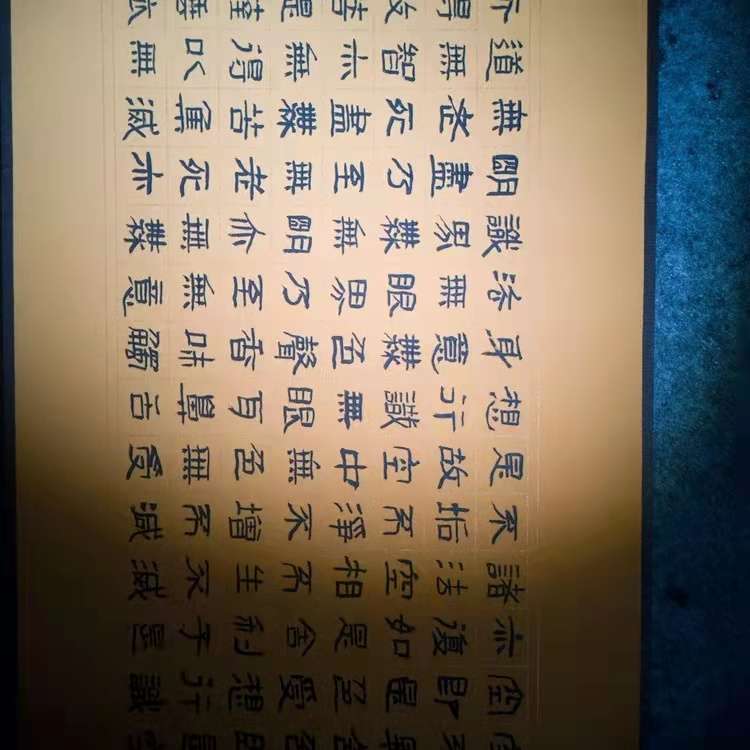 空即是色受想行識
亦復如是舍利子是
諸法空相不生不滅
不垢不淨不增不減
是故空中無色無受
想行識無眼耳鼻舌
身意無色聲香味觸
法無眼界乃至無意
識界無無明亦無無
明盡乃至無老死亦
無老死盡無苦集滅
道無智亦無得以無